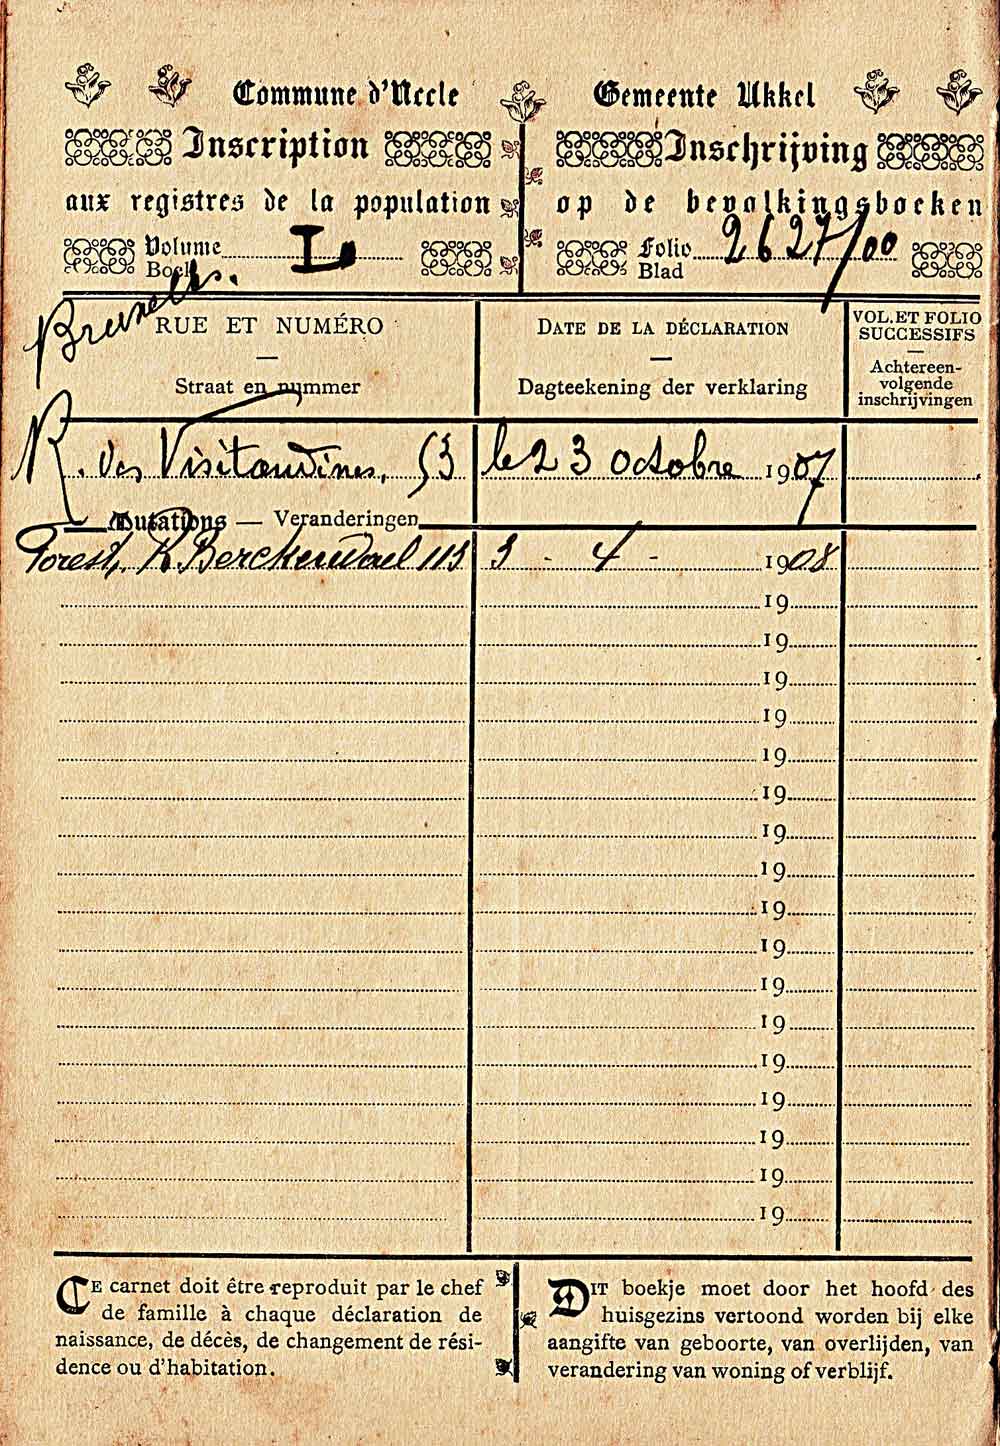 Commune d'Uccle
Inscription
aux registres de la population
Volume L.
Boek
Gemeente Ukkel
Inschrijving
op de bevolkingsboeken
Folio 2627/00
Blad
Bruxelles.
RUE ET NUMÉRO
Straat en nummer
DATE DE LA DÉCLARATION
Dagteekening der verklaring
VOL. ET FOLIO
SUCCESSIFS
Achtereen-
volgende
inschrijvingen
R. des Visitandines, 53 le 23 octobre 1907
Mutations — Veranderingen
Forest, R. Berckendael 113 3 - 4 - 1908
19
19
19
19
19
19
19
19
19
19
19
19
19
19
19
19
19
CE carnet doit être reproduit par le chef
de famille à chaque déclaration de
naissance, de décès, de changement de rési-
dence ou d'habitation.
DIT boekje moet door het hoofd des
huisgezins vertoond worden bij elke
aangifte van geboorte, van overlijden, van
verandering van woning of verblijf.